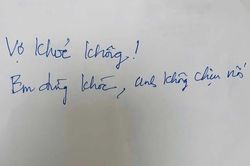 Vợ khóc không!
Em đừng khóc, anh không chịu nổi